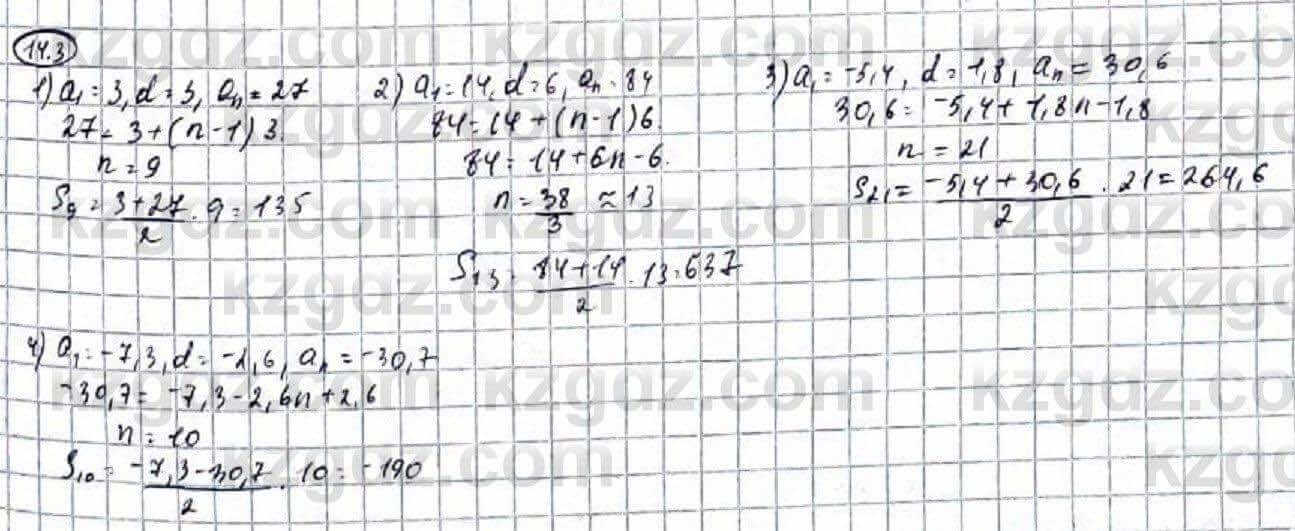 14.3
1) a₁ = 3, d = 3, aₙ = 27
27 = 3 + (n - 1) 3.
n = 9
S₉ = (3 + 27)/2 · 9 = 135
2) a₁ = 14, d = 6, aₙ = 84
84 = 14 + (n - 1) 6.
84 = 14 + 6n - 6.
n = 38/3 ≈ 13
S₁₃ = (84 + 14)/2 · 13 = 637
3) a₁ = -5,4, d = 1,8, aₙ = 30,6
30,6 = -5,4 + 1,8n - 1,8
n = 21
S₂₁ = (-5,4 + 30,6)/2 · 21 = 264,6
4) a₁ = -7,3, d = -2,6, aₙ = -30,7
-30,7 = -7,3 - 2,6n + 2,6
n = 10
S₁₀ = (-7,3 - 30,7)/2 · 10 = -190
kzgdz.com kzgdz.com kzgdz.com
kzgdz.com kzgdz.com kzgdz.com
kzgdz.com kzgdz.com kzgdz.com
kzgdz.com kzgdz.com kzgdz.com
kzgdz.com kzgdz.com kzgdz.com
kzgdz.com kzgdz.com kzgdz.com